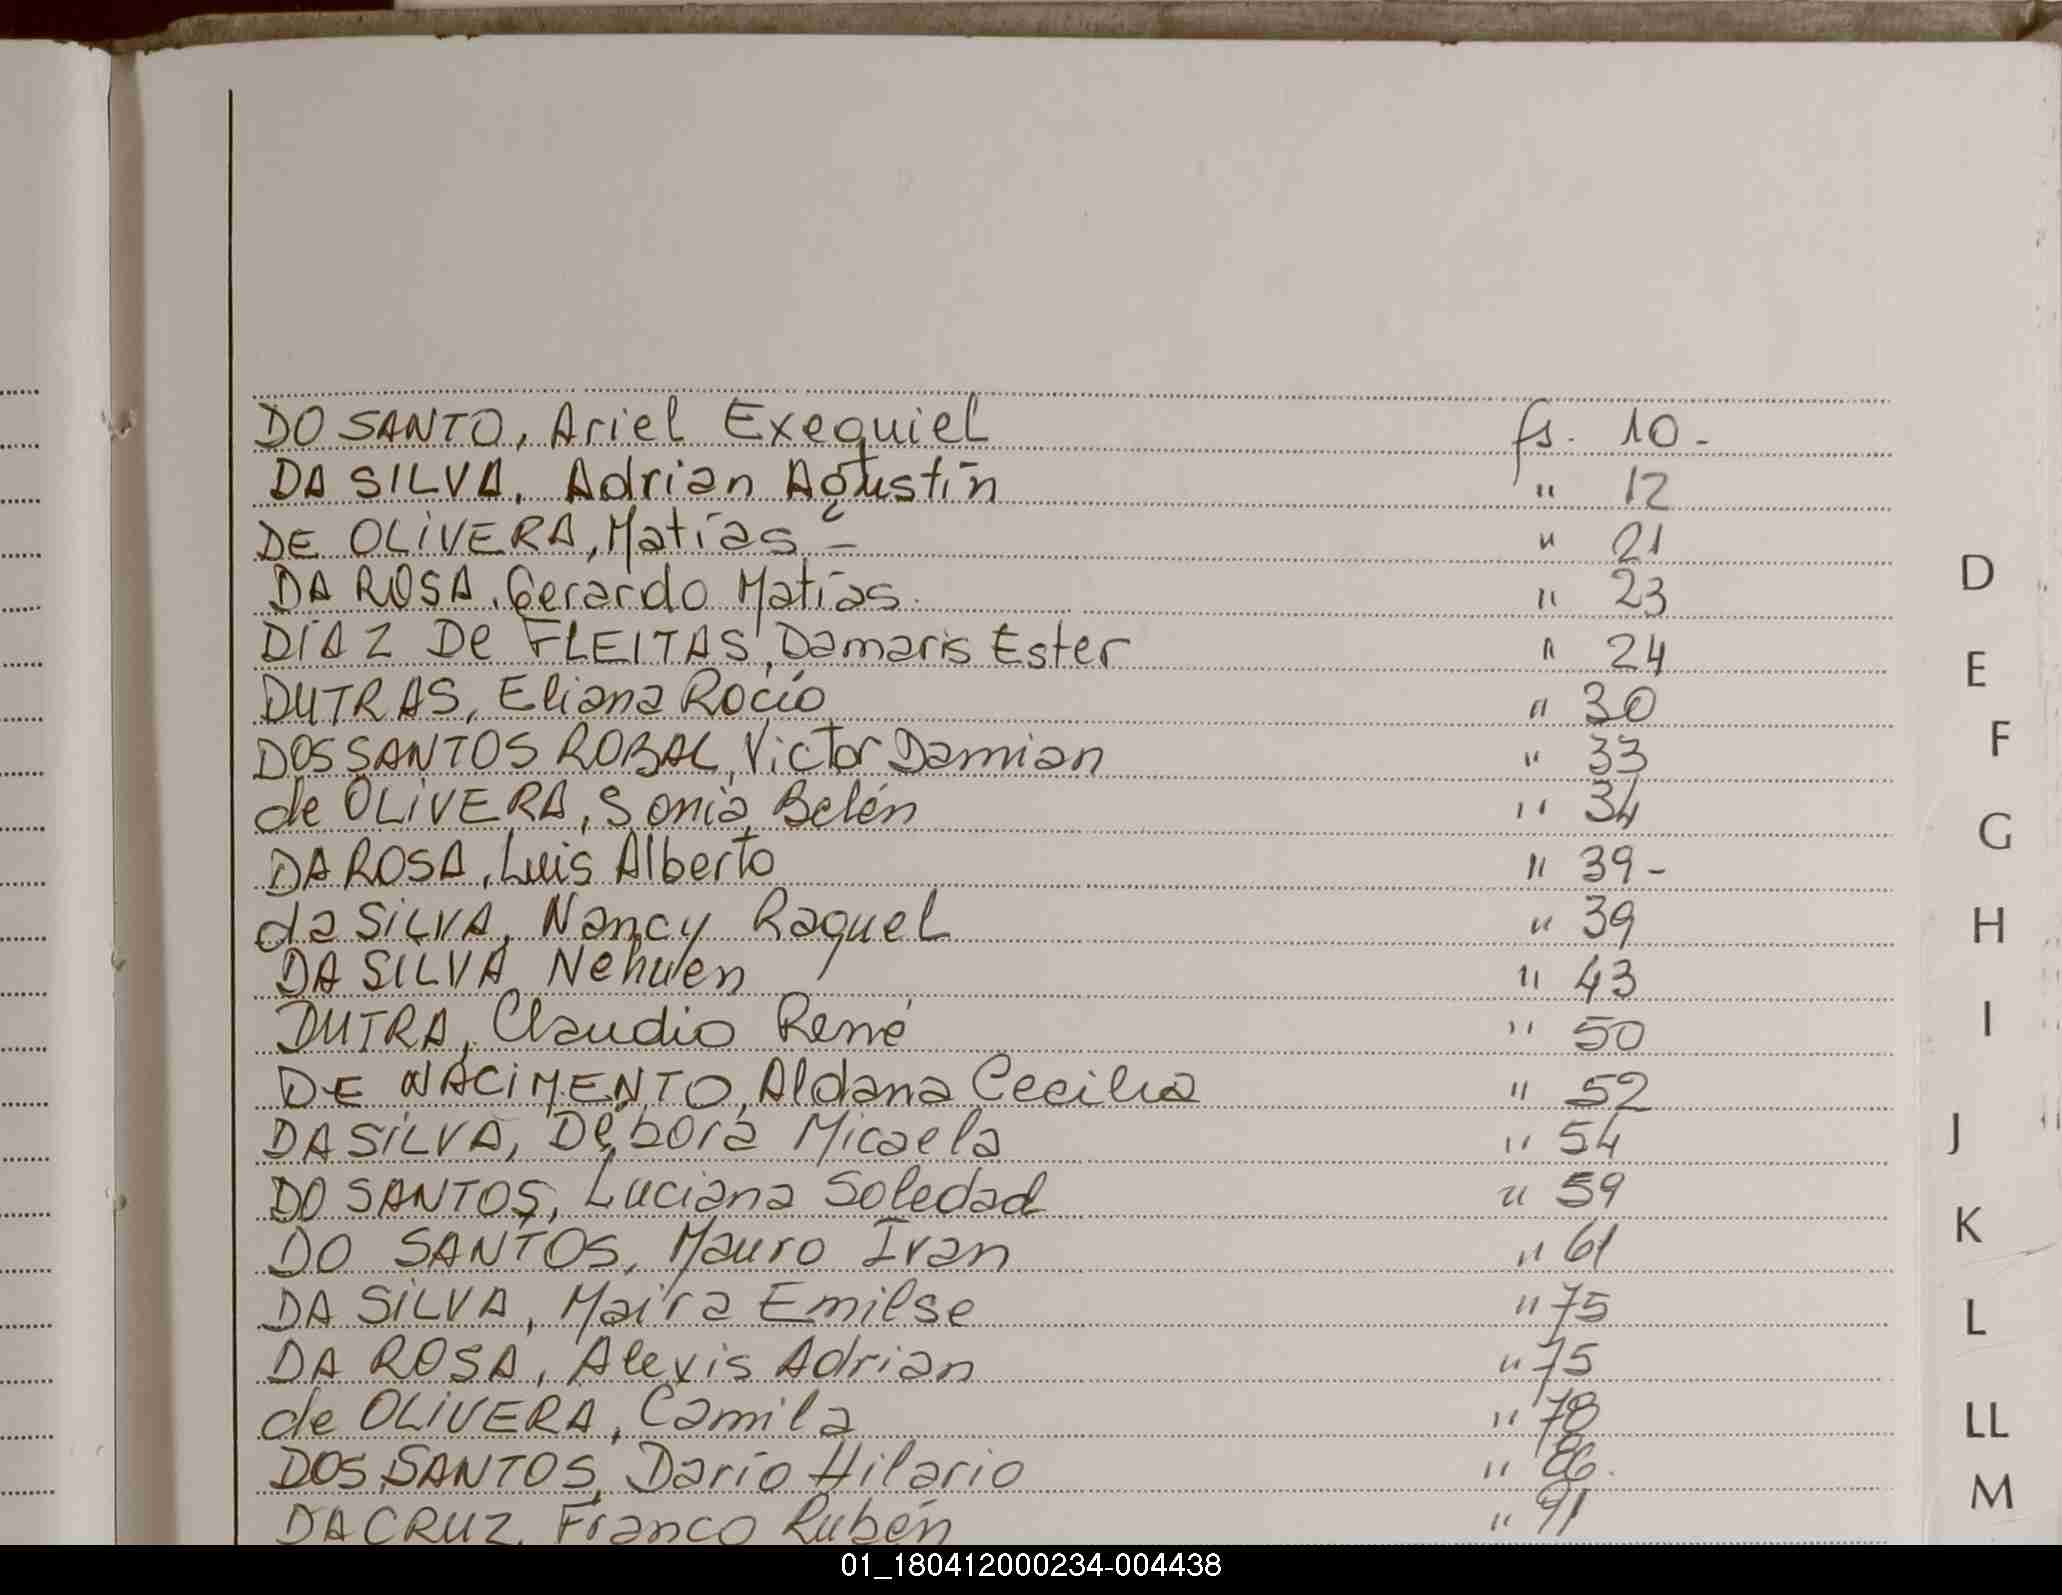 DO SANTO, Ariel Exequiel fs. 10 -
DA SILVA, Adrian Agustín " 12
DE OLIVERA, Matías - " 21
DA ROSA, Gerardo Matías. " 23
DÍAZ De FLEITAS, Damaris Ester " 24
DUTRAS, Eliana Rocío " 30
DOS SANTOS ROBAL, Victor Damian " 33
de OLIVERA, Sonia Belén " 34
DA ROSA, Luis Alberto " 39 -
da SILVA, Nancy Raquel " 39
DA SILVA Nehuen " 43
DUTRA, Claudio René " 50
DE NACIMENTO, Aldana Cecilia " 52
DA SILVA, Débora Micaela " 54
DO SANTOS, Luciana Soledad " 59
DO SANTOS, Mauro Ivan " 61
DA SILVA, Maira Emilse " 75
DA ROSA, Alexis Adrian " 75
de OLIVERA, Camila " 78
DOS SANTOS, Darío Hilario " 86.
DA CRUZ, Franco Rubén " 91
D
E
F
G
H
I
J
K
L
LL
M
01_180412000234-004438